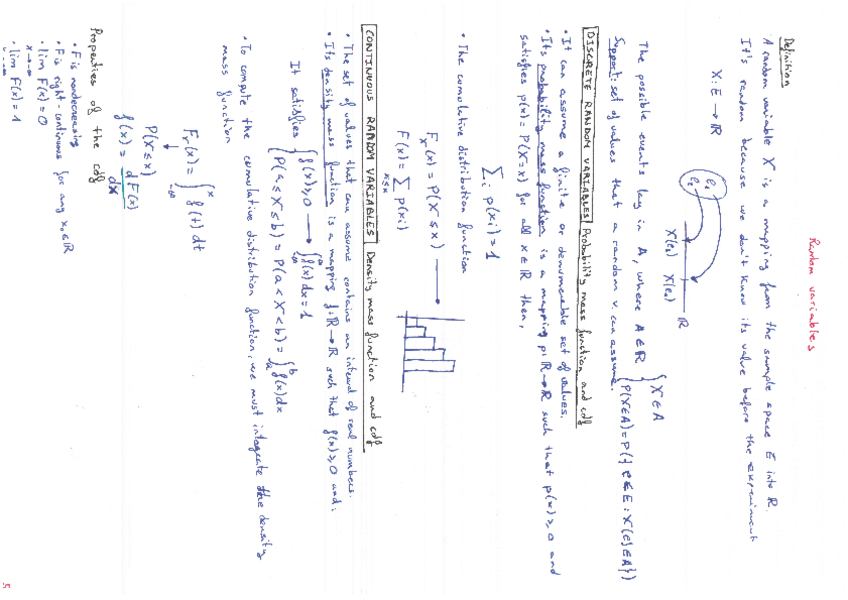 Random variables
Definition
A random variable X is a mapping from the sample space E into R.
It's random because we don't know its value before the experiment
X: E → ℝ
e₁
e₂
X(e₁) X(e₂)
ℝ
The possible events lay in A, where A ∈ ℝ { X ∈ A
P(X∈A) = P({e ∈ E : X(e) ∈ A})
Support: set of values that a random v. can assume.
DISCRETE RANDOM VARIABLES Probability mass function and cdf
• It can assume a finite or denumerable set of values.
• Its probability mass function is a mapping p: ℝ→ℝ such that p(x) ⩾ 0 and
satisfies p(x) = P(X=x) for all x ∈ ℝ then,
∑ᵢ p(xi) = 1
• The comulative distribution function
Fₓ(x) = P(X ≤ x) →
F(x) = ∑ p(xi)
xi≤x
CONTINUOUS RANDOM VARIABLES Density mass function and cdf
• The set of values that can assume contains an interval of real numbers.
• Its density mass function is a mapping f: ℝ→ℝ such that f(x) ⩾ 0 and:
It satisfies { f(x) ⩾ 0 → ∫_{-∞}^{∞} f(x) dx = 1
P(a ≤ X ≤ b) = P(a < X < b) = ∫_a^b f(x) dx
• To compute the comulative distribution function, we must integrate the density
mass function
Fₓ(x) = ∫_{-∞}^x f(t) dt
↓
P(X ≤ x)
f(x) = dF(x)/dx
Properties of the cdf
• F is nondecreasing
• F is right-continuous for any x₀ ∈ ℝ
• lim F(x) = 0
x→-∞
• lim F(x) = 1
5